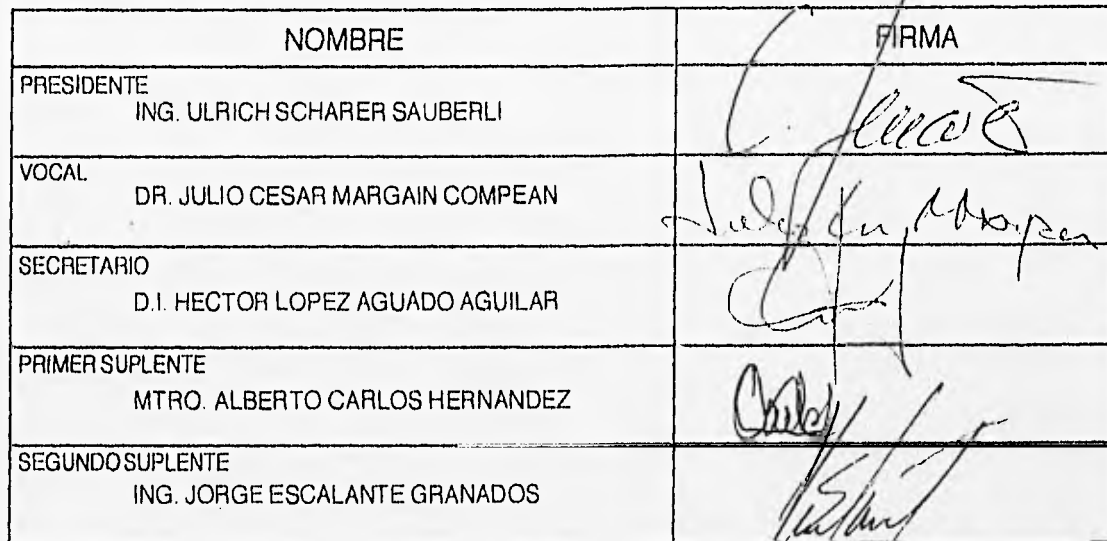 NOMBRE FIRMA
PRESIDENTE
ING. ULRICH SCHARER SAUBERLI
VOCAL
DR. JULIO CESAR MARGAIN COMPEAN
SECRETARIO
D.I. HECTOR LOPEZ AGUADO AGUILAR
PRIMER SUPLENTE
MTRO. ALBERTO CARLOS HERNANDEZ
SEGUNDO SUPLENTE
ING. JORGE ESCALANTE GRANADOS